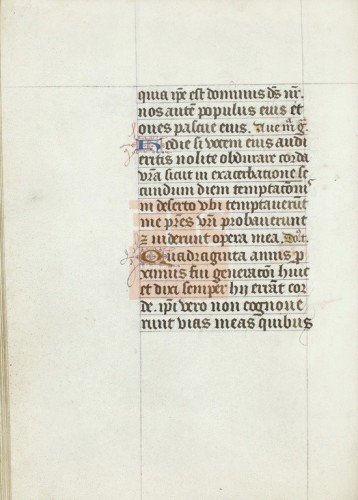 quia ip̄e est dominus ds̄ nr̄.
nos autē populus eius et
oues pascue eius. Aue m̄ ḡ.
Hodie si vocem eius audi
eritis nolite obdurare corda
vr̄a sicut in exacerbatione se
cundum diem temptatōnis
in deserto vbi temptauerūt
me p̄res vr̄i probauerunt
⁊ viderunt opera mea. Dn̄s t.
Quadraginta annis p
ximus fui generatōni huic
et dixi semper hii errāt cor
de. ip̄i vero non cognoue
runt vias meas quibus